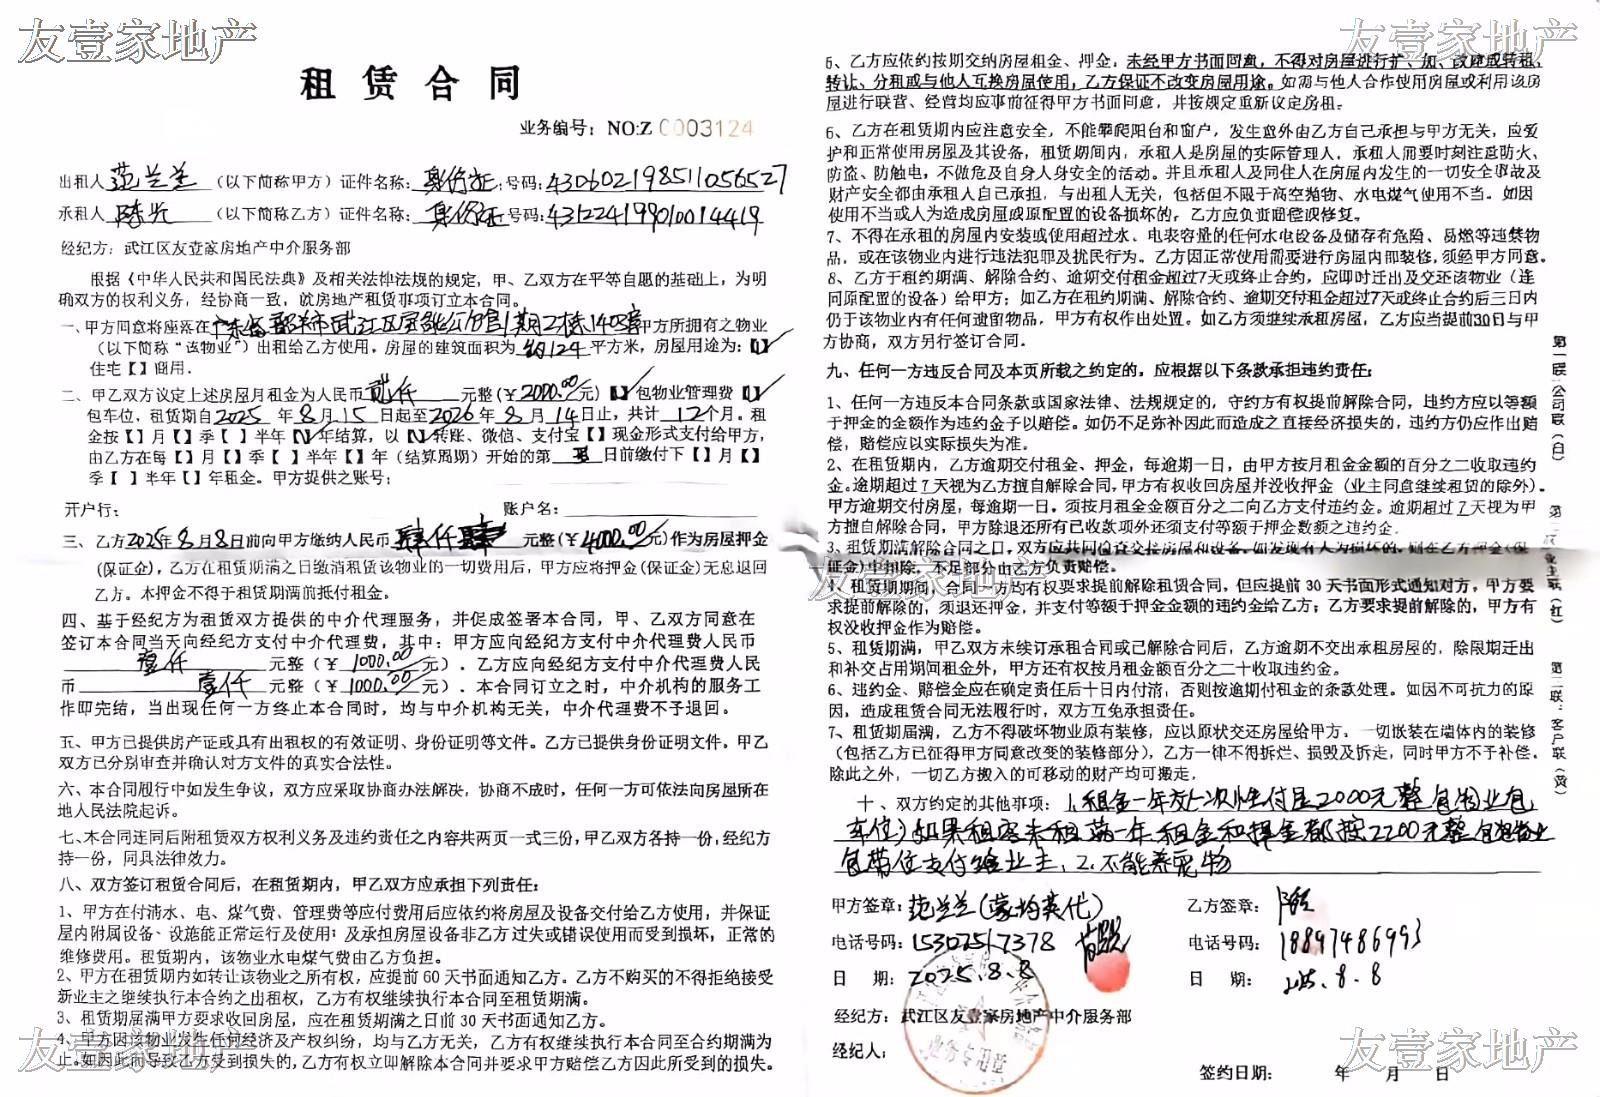 友壹家地产
友壹家地产
租赁合同
业务编号：NO:Z 0003124
出租人 范兰兰 （以下简称甲方）证件名称：身份证；号码：430602198511056527
承租人 陈光 （以下简称乙方）证件名称：身份证 号码：431224199010014419
经纪方：武江区友壹家房地产中介服务部
根据《中华人民共和国民法典》及相关法律法规的规定，甲、乙双方在平等自愿的基础上，为明
确双方的权利义务，经协商一致，就房地产租赁事项订立本合同。
一、甲方同意将座落在广东省韶关市武江区 公馆1期2栋1403 甲方所拥有之物业
（以下简称“该物业”）出租给乙方使用，房屋的建筑面积为 约124 平方米，房屋用途为：【√】
住宅【 】商用．
二、甲乙双方议定上述房屋月租金为人民币 贰仟 元整（￥2000.00元）【√】包物业管理费【√】
包车位，租赁期自2025 年 8 月 15 日起至2026年 8 月 14日止，共计 12个月。租
金按【 】月【 】季【 】半年【√】年结算，以【√】转账、微信、支付宝【 】现金形式支付给甲方，
由乙方在每【 】月【 】季【 】半年【 】年（结算周期）开始的第 日前缴付下【 】月【 】
季【 】半年【 】年租金。甲方提供之账号：
开户行： 账户名：
三、乙方2025年 8 月 8日前向甲方缴纳人民币 肆仟 元整（￥4000.00元）作为房屋押金
（保证金），乙方在租赁期满之日缴清租赁该物业的一切费用后，甲方应将押金（保证金）无息退回
乙方。本押金不得于租赁期满前抵付租金。
四、基于经纪方为租赁双方提供的中介代理服务，并促成签署本合同，甲、乙双方同意在
签订本合同当天向经纪方支付中介代理费，其中：甲方应向经纪方支付中介代理费人民币
壹仟 元整（￥ 1000.00 元）．乙方应向经纪方支付中介代理费人民
币 壹仟 元整（￥ 1000.00 元）．本合同订立之时，中介机构的服务工
作即完结，当出现任何一方终止本合同时，均与中介机构无关，中介代理费不予退回。
五、甲方已提供房产证或具有出租权的有效证明、身份证明等文件。乙方已提供身份证明文件。甲乙
双方已分别审查并确认对方文件的真实合法性。
六、本合同履行中如发生争议，双方应采取协商办法解决，协商不成时，任何一方可依法向房屋所在
地人民法院起诉。
七、本合同连同后附租赁双方权利义务及违约责任之内容共两页一式三份，甲乙双方各持一份，经纪方
持一份，同具法律效力。
八、双方签订租赁合同后，在租赁期内，甲乙双方应承担下列责任：
1、甲方在付清水、电、煤气费、管理费等应付费用后应依约将房屋及设备交付给乙方使用，并保证
屋内附属设备、设施能正常运行及使用；及承担房屋设备非乙方过失或错误使用而受到损坏，正常的
维修费用。租赁期内，该物业水电煤气费由乙方负担。
2、甲方在租赁期内如转让该物业之所有权，应提前60天书面通知乙方。乙方不购买的不得拒绝接受
新业主之继续执行本合约之出租权，乙方有权继续执行本合同至租赁期满。
3、租赁期届满甲方要求收回房屋，应在租赁期满之日前30天书面通知乙方。
4、甲方因该物业发生任何经济及产权纠纷，均与乙方无关，乙方有权继续执行本合同至合约期满为
止。如因此而导致乙方受到损失的，乙方有权立即解除本合同并要求甲方赔偿乙方因此所受到的损失。
5、乙方应依约按期交纳房屋租金、押金，未经甲方书面同意，不得对房屋进行扩、加、改建或转租、
转让、分租或与他人互换房屋使用，乙方保证不改变房屋用途。如需与他人合作使用房屋或利用该房
屋进行联营、经营均应事前征得甲方书面同意，并按规定重新议定房租。
6、乙方在租赁期内应注意安全，不能攀爬阳台和窗户，发生意外由乙方自己承担与甲方无关，应爱
护和正常使用房屋及其设备，租赁期间内，承租人是房屋的实际管理人，承租人需要时刻注意防火、
防盗、防触电，不做危及自身人身安全的活动。并且承租人及同住人在房屋内发生的一切安全事故及
财产安全都由承租人自己承担，与出租人无关，包括但不限于高空抛物、水电煤气使用不当。如因
使用不当或人为造成房屋或原配置的设备损坏的，乙方应负责赔偿或修复。
7、不得在承租的房屋内安装或使用超过水、电表容量的任何水电设备及储存有危险、易燃等违禁物
品，或在该物业内进行违法犯罪及扰民行为。乙方因正常使用需要进行房屋内部装修，须经甲方同意。
8、乙方于租约期满、解除合约、逾期交付租金超过7天或终止合约，应即时迁出及交还该物业（连
同原配置的设备）给甲方；如乙方在租约期满、解除合约、逾期交付租金超过7天或终止合约后三日内
仍于该物业内有任何遗留物品，甲方有权作出处置。如乙方须继续承租房屋，乙方应当提前30日与甲
方协商，双方另行签订合同．
九、任何一方违反合同及本页所载之约定的，应根据以下条款承担违约责任：
1、任何一方违反本合同条款或国家法律、法规规定的，守约方有权提前解除合同，违约方应以等额
于押金的金额作为违约金予以赔偿。如仍不足弥补因此而造成之直接经济损失的，违约方仍应作出赔
偿，赔偿应以实际损失为准。
2、在租赁期内，乙方逾期交付租金、押金，每逾期一日，由甲方按月租金金额的百分之二收取违约
金。逾期超过 7 天视为乙方擅自解除合同，甲方有权收回房屋并没收押金（业主同意继续租赁的除外）．
甲方逾期交付房屋，每逾期一日．须按月租金金额百分之二向乙方支付违约金。逾期超过 7天视为甲
方擅自解除合同，甲方除退还所有已收款项外还须支付等额于押金数额之违约金．
3、租赁期满解除合同之日，双方应共同检查交接房屋和设备，如发现有人为损坏的，则在乙方押金（保
证金）中扣除，不足部分由乙方负责赔偿。
友壹家地产
4、租赁期期间，任何一方均有权要求提前解除租赁合同，但应提前 30 天书面形式通知对方，甲方要
求提前解除的，须退还押金，并支付等额于押金金额的违约金给乙方；乙方要求提前解除的，甲方有
权没收押金作为赔偿。
5、租赁期满，甲乙双方未续订承租合同或已解除合同后，乙方逾期不交出承租房屋的，除限期迁出
和补交占用期间租金外，甲方还有权按月租金额百分之二十收取违约金。
6、违约金、赔偿金应在确定责任后十日内付清，否则按逾期付租金的条款处理。如因不可抗力的原
因，造成租赁合同无法履行时，双方互免承担责任。
7、租赁期届满，乙方不得破坏物业原有装修，应以原状交还房屋给甲方．一切嵌装在墙体内的装修
（包括乙方已征得甲方同意改变的装修部分），乙方一律不得拆烂、损毁及拆走，同时甲方不予补偿。
除此之外，一切乙方搬入的可移动的财产均可搬走．
十、双方约定的其他事项：1.租金一年 一次性付是2000元整包物业包
车位）如果租客未租满一年租金和押金都按2200元整包 物业
包 位支付给业主．2.不能养宠物
甲方签章：范兰兰 代） 乙方签章：
电话号码：15302517378 电话号码：18897486993
日 期：2025.8.8 日 期：2025.8.8
经纪方：武江区友壹家房地产中介服务部
经纪人：
业务专用章
签约日期： 年 月 日
第一联：公司联（白）
第二联：业主联（红）
第三联：客户联（黄）
友壹家地产
友壹家地产